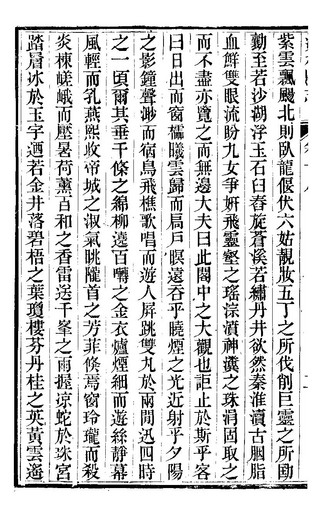 紫雲飄颺北則臥龍偃伏六姑靚妝五丁之所伐削巨靈之所
勤至若沙湖浮玉石臼舂旋蒼溪若繡丹井欲然秦淮瀆古胭脂
血鮮雙眼流盼九女爭姸飛靈壑之瑤淙濆神瀵之珠涓固取之
而不盡亦覽之而無邊大夫曰此閣中之大觀也詎止於斯乎客
曰日出而窗櫺曦雲歸而扃戶暝遠吞乎曉煙之光近射乎夕陽
之影鐘聲渺而宿鳥飛樵歌唱而遊人屏跳雙丸於兩間迅四時
之一頃爾其垂千條之綿柳遶百囀之金衣爐煙細而遊絲靜幕
風輕而乳燕熙收帝城之淑氣眺隴首之芳菲倏焉窗玲瓏而殺
炎棟嵯峨而壓暑荷薰百和之香雷送千峯之雨握涼蛇於珠宮
踏層冰於玉宇迺若金井落碧梧之葉瓊樓芬丹桂之英黃雲遶